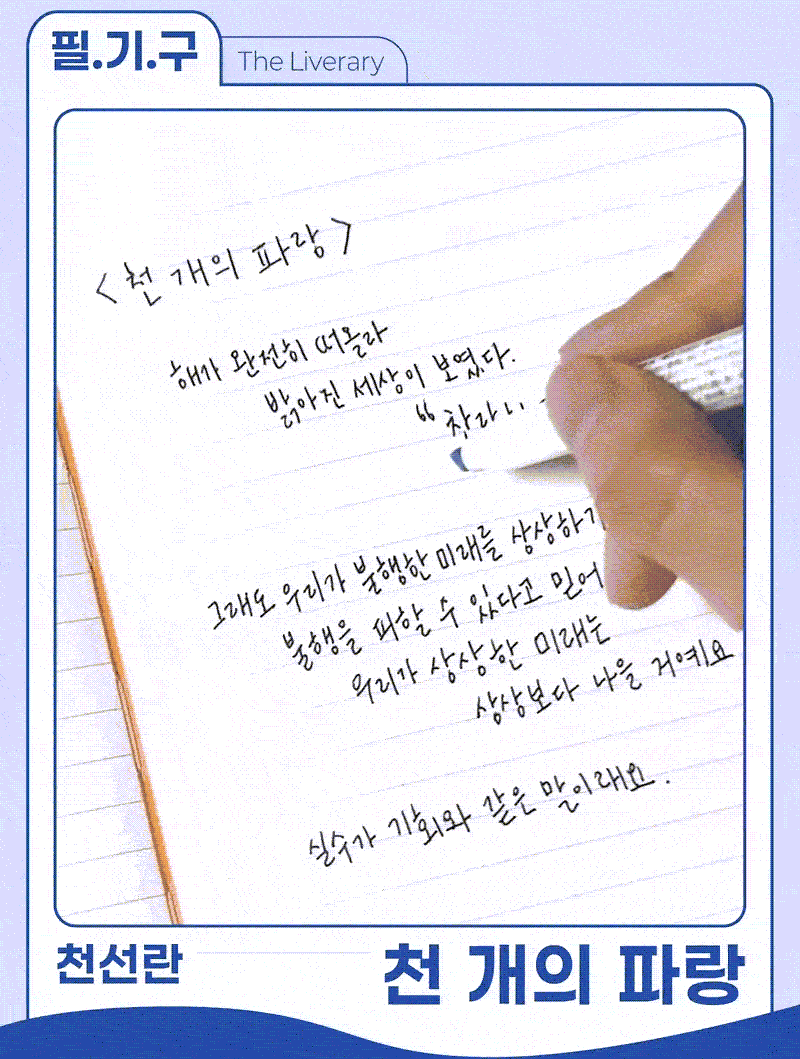 필.기.구
The Liverary
<천 개의 파랑>
해가 완전히 떠올라
밝아진 세상이 보였다.
“찬란
그래도 우리가 불행한 미래를 상상하기
불행을 피할 수 있다고 믿어
우리가 상상한 미래는
상상보다 나을 거예요
실수가 기회와 같은 말이래요.
천선란
천 개의 파랑